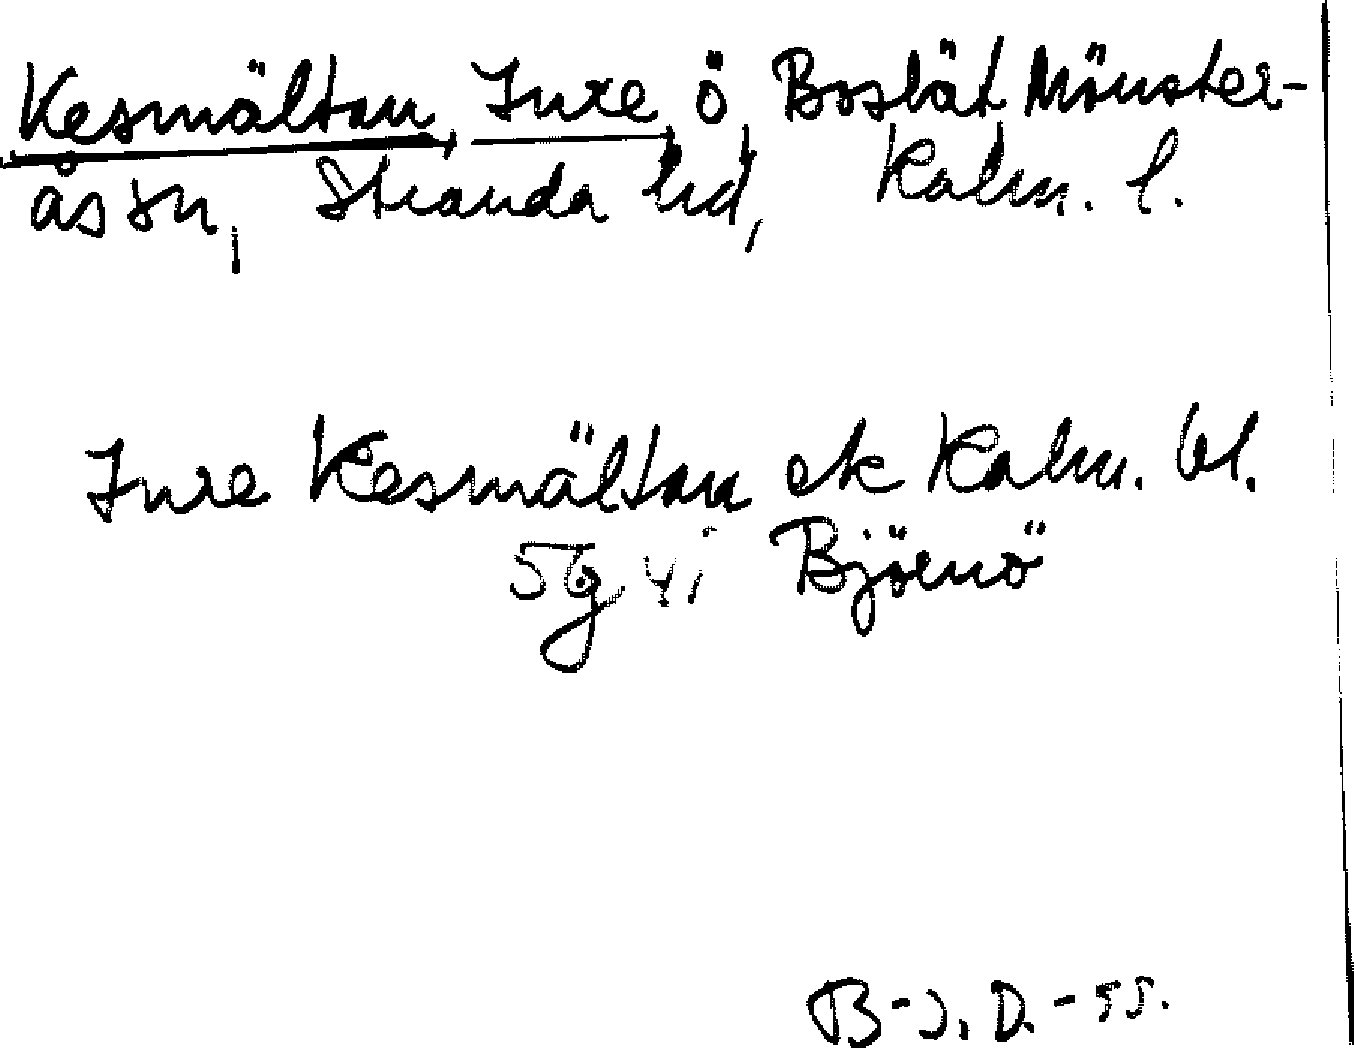 Kesmältan, Inre, ö, Boslät, Mönster-
ås sn, Stranda hd, Kalm. l.
Inre Kesmältan ek Kalm. bl.
5g 4i Björnö
B-J. D. -55.